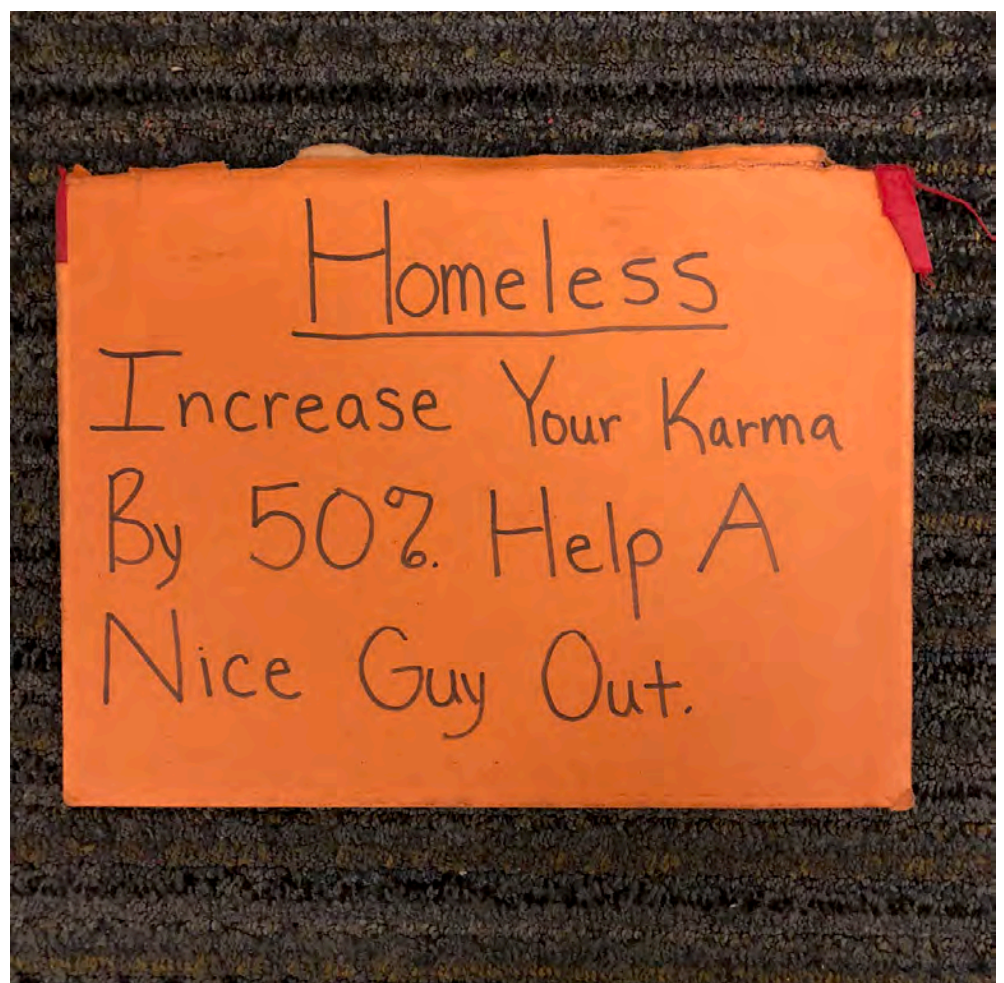 Homeless
Increase Your Karma
By 50%. Help A
Nice Guy Out.